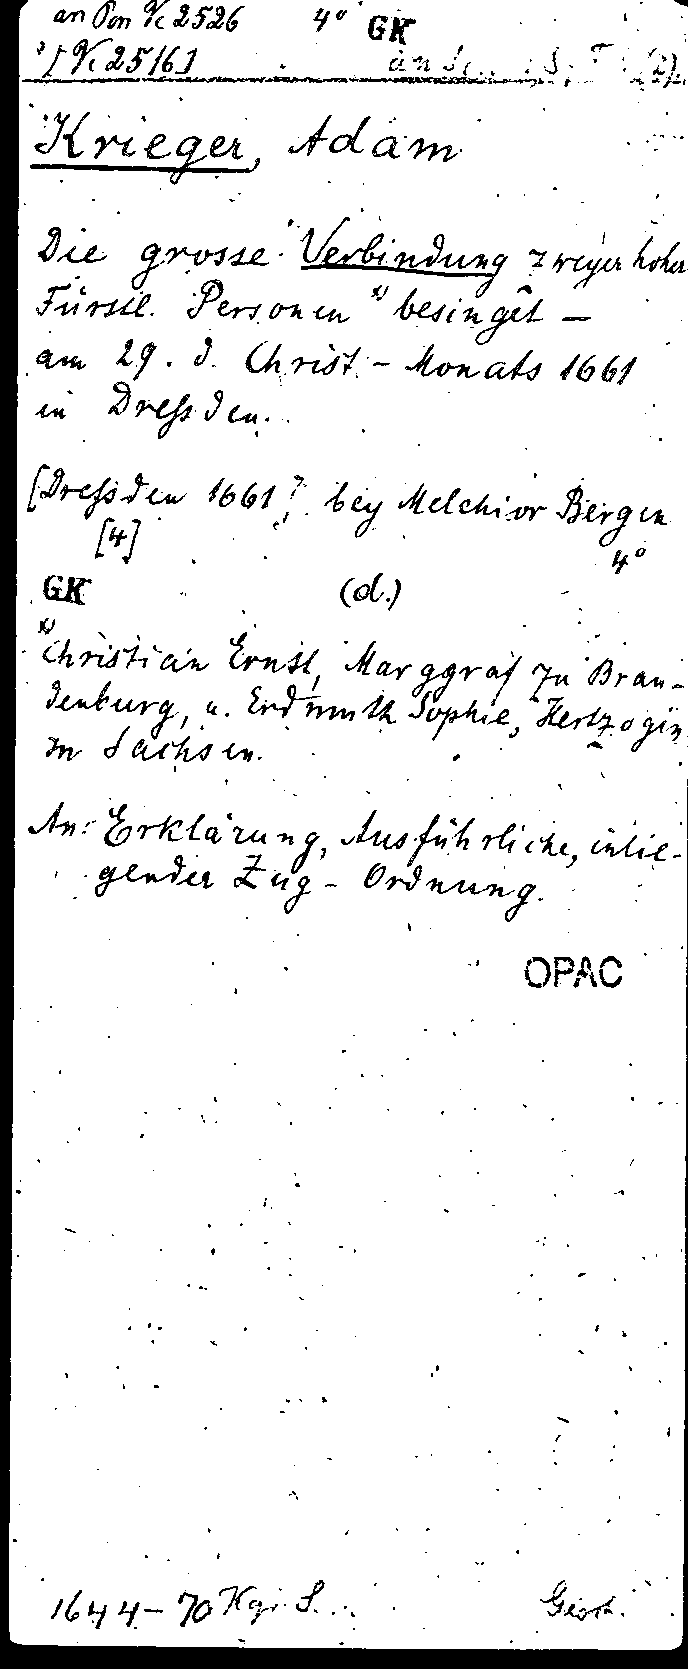 an Pon Vc 2526 4° GK
[Vc 2516]
Krieger, Adam
Die grosse Verbindung zweyer hoher
Fürstl. Personen *) besinget –
am 29. d. Christ-Monats 1661
in Dreßden.
[Dreßden 1661], bey Melchior Bergen
[4] 4°
GK (d.)
*) Christian Ernst, Marggraf zu Bran-
denburg, u. Erdmuth Sophie, Hertzogin
zu Sachsen.
An: Erklärung, Ausführliche, inlie-
gender Zug-Ordnung.
OPAC
1644-70 Kgr. S.